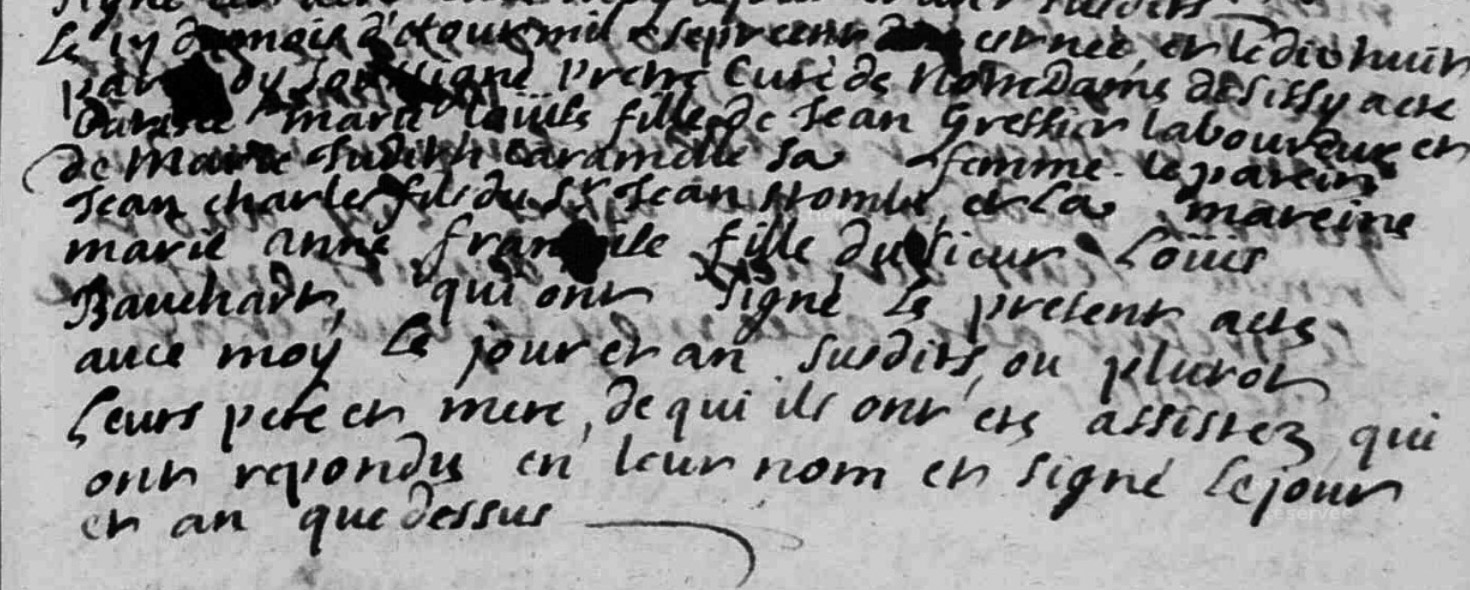 Le 17 du mois d'Aoust mil sept cent est née, et le dix huit
par Soussigné Pretre Curé de Notre Dame de Sissy a été
Batisée marie Loüise fille de Jean Gressier laboureur et
de Marie Judith Caramelle sa femme. le parein
Jean charle fils du Sr Jean et La mareine
marie anne fille du sieur Loüis
Bauchart, qui ont Signé le present acte
avec moy Le jour et an susdits, ou plutot
Leurs pere et mere, de qui ils ont eté assistez qui
ont repondu en leur nom et signé Le jour
et an que dessus